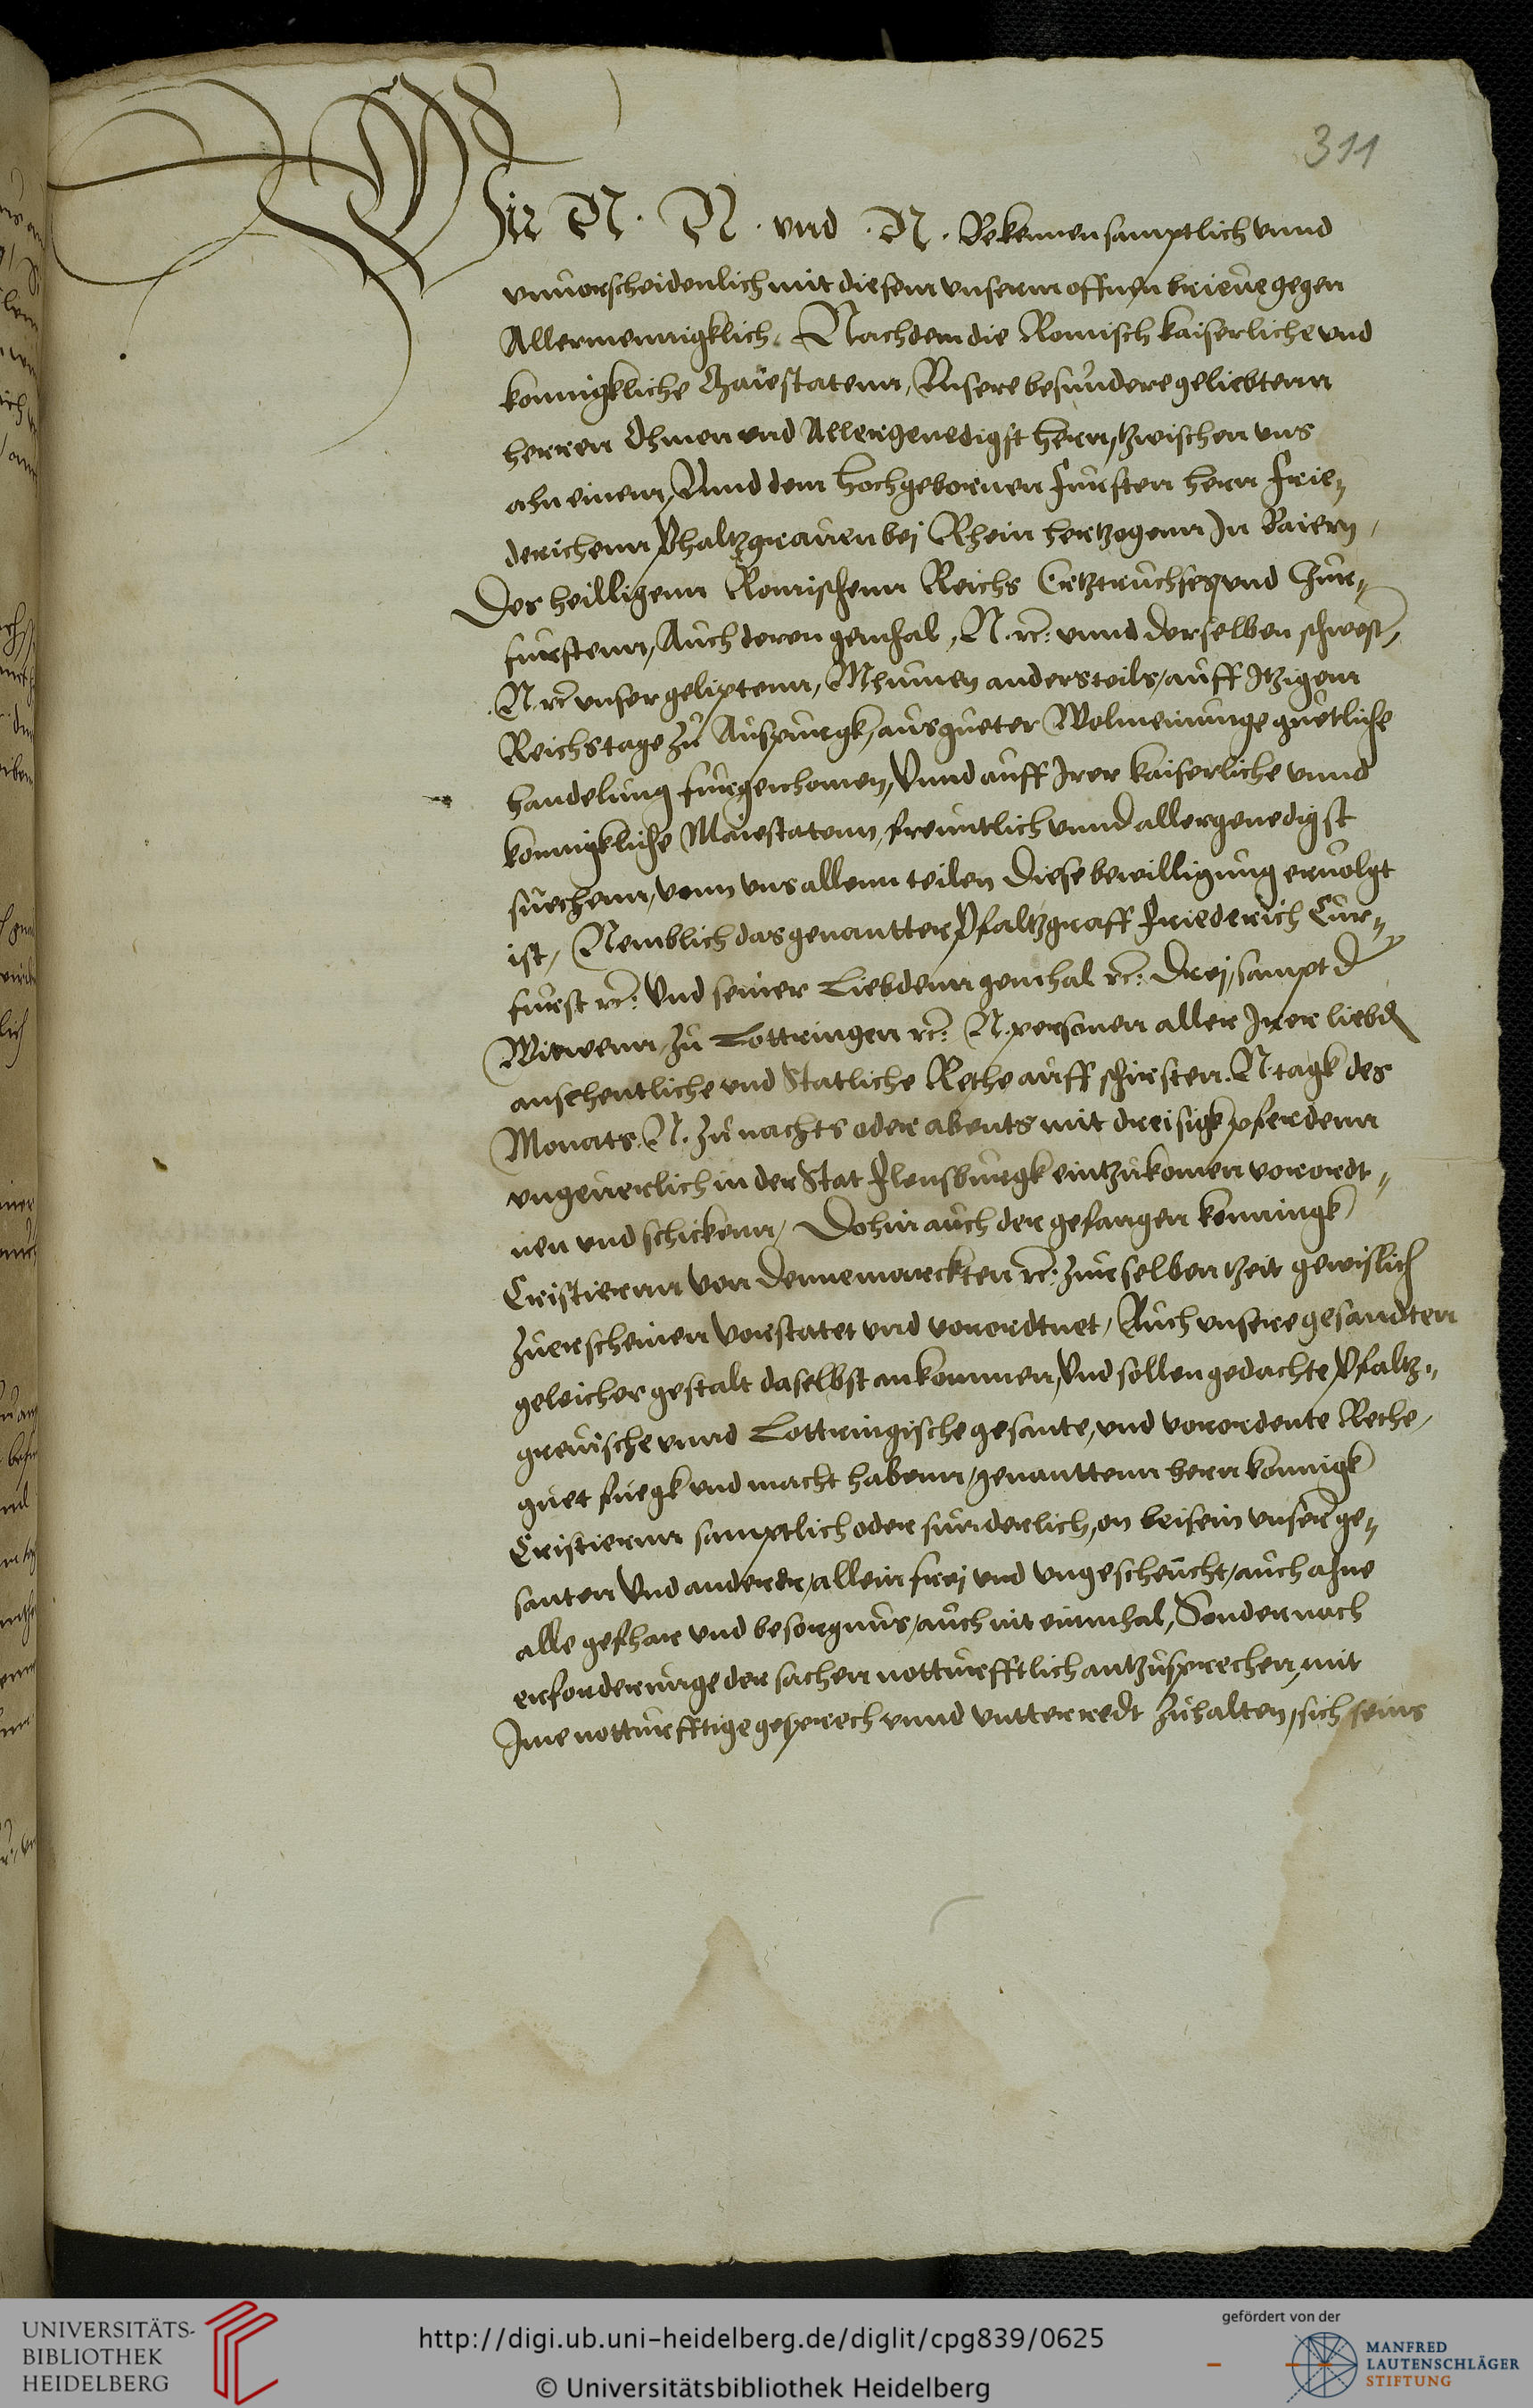 311
Wir N. N. vnd .N. Bekennen samptlich vnnd
vnuorscheidenlich mit diesem vnserm offnen brieue gegen
Allermennigklich, Nachdem die Romisch kaiserliche vnd
konnigkliche Maiestatenn, Vnsere besundere geliebtenn
herren Ohmen vnd Allergenedigst hern, zwischen vns
ahn einem, Vnnd dem Hochgebornen Fursten hern Frie,
derichenn Phaltzgrauen bej Rhein hertzogenn In Baiern,
Des heilligenn Romischenn Reichs Ertztruchses vnd Chur,
furstenn, Auch deren gemhal, N. rc: vnnd derselben schwest,
.N. rc vnser geliptenn, Mhumen andersteils, auff Itzigem
Reichstage zu Auspurgk, aus gueter Wolmeinunge guetliche
handelung furgenhomen, Vnnd auff Irer kaiserliche vnnd
konnigkliche Maiestatenn, freuntlich vnnd allergenedigst
suechenn, vonn vns allenn teilen diese bewilligung eruolgt
ist, Nemblich das genantter Pfaltzgraff Friederich Cur,
furst rc: Vnd seiner Liebdenn gemhal rc: drej, sampt d
Witwenn, zu Lottringen rc: N. personen aller Irer liebd
ansehentliche vnd Statliche Rethe auff schirsten .N. tagk des
Monats .N. zu nachts oder abents mit dreisigk pferdenn
vngeuerlich in der Stat Flensburgk eintzukomen verordt,
nen vnd schickenn, Dohin auch der gefangen konningk
Cristiernn von Dennemarckten rc: zur selben zeit gewislich
zu erscheinen vorstatet vnd vorordtnet, Auch vnsere gesandten
geleicher gestalt daselbst ankommen, Vnd sollen gedachte Pfaltz,
greuische vnnd Lottringische gesante, vnd vorordente Rethe,
guet fuegk vnd macht habenn, genanttenn hern konnigk
Cristiernn samptlich oder sunderlich, on beisein vnserer ge,
santen Vnd anderer, allein frej vnd vngescheucht, auch ahne
alle gefhar vnd besorgnus, auch nit einmhal, Sonder nach
erforderunge der sachen notturfftlich antzusprechen, mit
Ime notturfftige gesprech vnnd vntterredt zuhalten, sich seins
UNIVERSITÄTS-
BIBLIOTHEK
HEIDELBERG
http://digi.ub.uni-heidelberg.de/diglit/cpg839/0625
© Universitätsbibliothek Heidelberg
gefördert von der
MANFRED
LAUTENSCHLÄGER
STIFTUNG